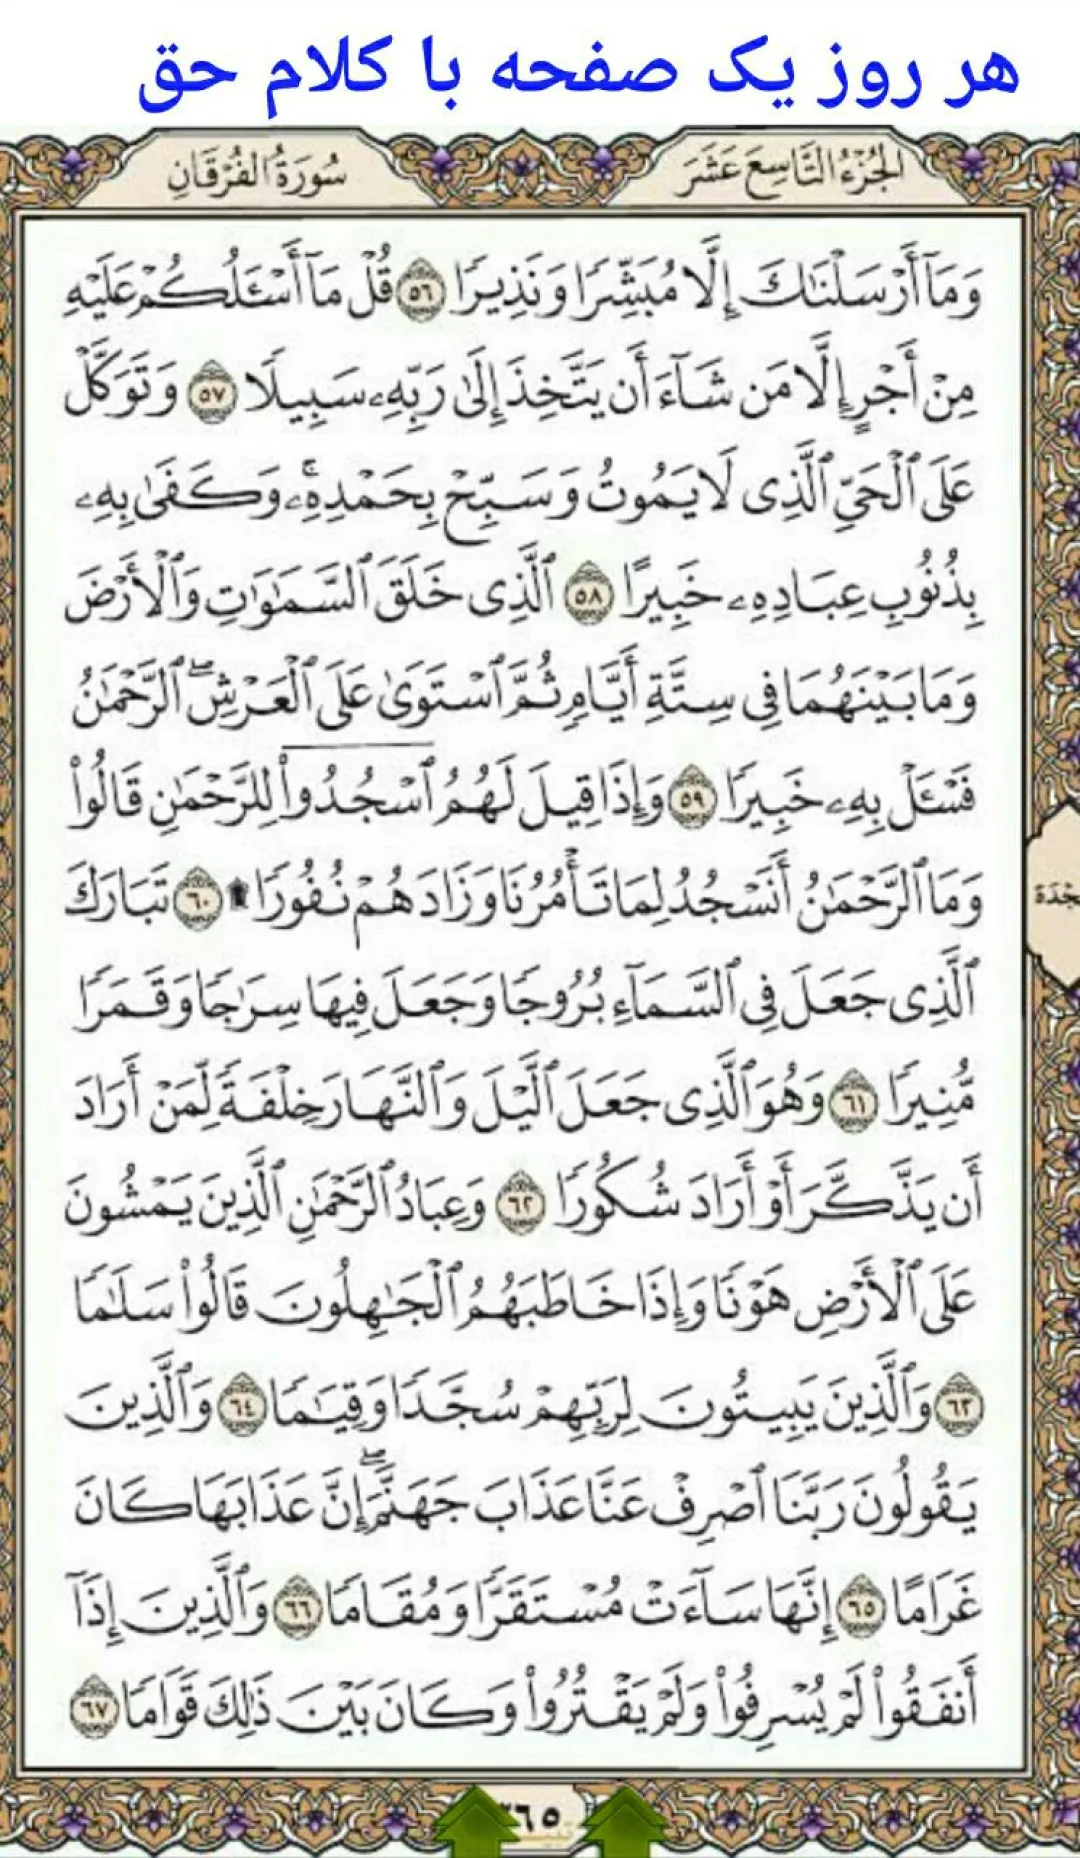 هر روز یک صفحه با کلام حق
الجُزْءُ التَّاسِعَ عَشَرَ
سُورَةُ الْفُرْقَانِ
وَمَآ أَرْسَلْنَٰكَ إِلَّا مُبَشِّرًا وَنَذِيرًا ٥٦ قُلْ مَآ أَسْـَٔلُكُمْ عَلَيْهِ
مِنْ أَجْرٍ إِلَّا مَن شَآءَ أَن يَتَّخِذَ إِلَىٰ رَبِّهِۦ سَبِيلًا ٥٧ وَتَوَكَّلْ
عَلَى ٱلْحَىِّ ٱلَّذِى لَا يَمُوتُ وَسَبِّحْ بِحَمْدِهِۦ ۚ وَكَفَىٰ بِهِۦ
بِذُنُوبِ عِبَادِهِۦ خَبِيرًا ٥٨ ٱلَّذِى خَلَقَ ٱلسَّمَٰوَٰتِ وَٱلْأَرْضَ
وَمَا بَيْنَهُمَا فِى سِتَّةِ أَيَّامٍ ثُمَّ ٱسْتَوَىٰ عَلَى ٱلْعَرْشِ ۖ ٱلرَّحْمَٰنُ
فَسْـَٔلْ بِهِۦ خَبِيرًا ٥٩ وَإِذَا قِيلَ لَهُمُ ٱسْجُدُوا۟ لِلرَّحْمَٰنِ قَالُوا۟
وَمَا ٱلرَّحْمَٰنُ أَنَسْجُدُ لِمَا تَأْمُرُنَا وَزَادَهُمْ نُفُورًا ۩ ٦٠ تَبَارَكَ
ٱلَّذِى جَعَلَ فِى ٱلسَّمَآءِ بُرُوجًا وَجَعَلَ فِيهَا سِرَٰجًا وَقَمَرًا
مُّنِيرًا ٦١ وَهُوَ ٱلَّذِى جَعَلَ ٱلَّيْلَ وَٱلنَّهَارَ خِلْفَةً لِّمَنْ أَرَادَ
أَن يَذَّكَّرَ أَوْ أَرَادَ شُكُورًا ٦٢ وَعِبَادُ ٱلرَّحْمَٰنِ ٱلَّذِينَ يَمْشُونَ
عَلَى ٱلْأَرْضِ هَوْنًا وَإِذَا خَاطَبَهُمُ ٱلْجَٰهِلُونَ قَالُوا۟ سَلَٰمًا
٦٣ وَٱلَّذِينَ يَبِيتُونَ لِرَبِّهِمْ سُجَّدًا وَقِيَٰمًا ٦٤ وَٱلَّذِينَ
يَقُولُونَ رَبَّنَا ٱصْرِفْ عَنَّا عَذَابَ جَهَنَّمَ ۖ إِنَّ عَذَابَهَا كَانَ
غَرَامًا ٦٥ إِنَّهَا سَآءَتْ مُسْتَقَرًّا وَمُقَامًا ٦٦ وَٱلَّذِينَ إِذَآ
أَنفَقُوا۟ لَمْ يُسْرِفُوا۟ وَلَمْ يَقْتُرُوا۟ وَكَانَ بَيْنَ ذَٰلِكَ قَوَامًا ٦٧